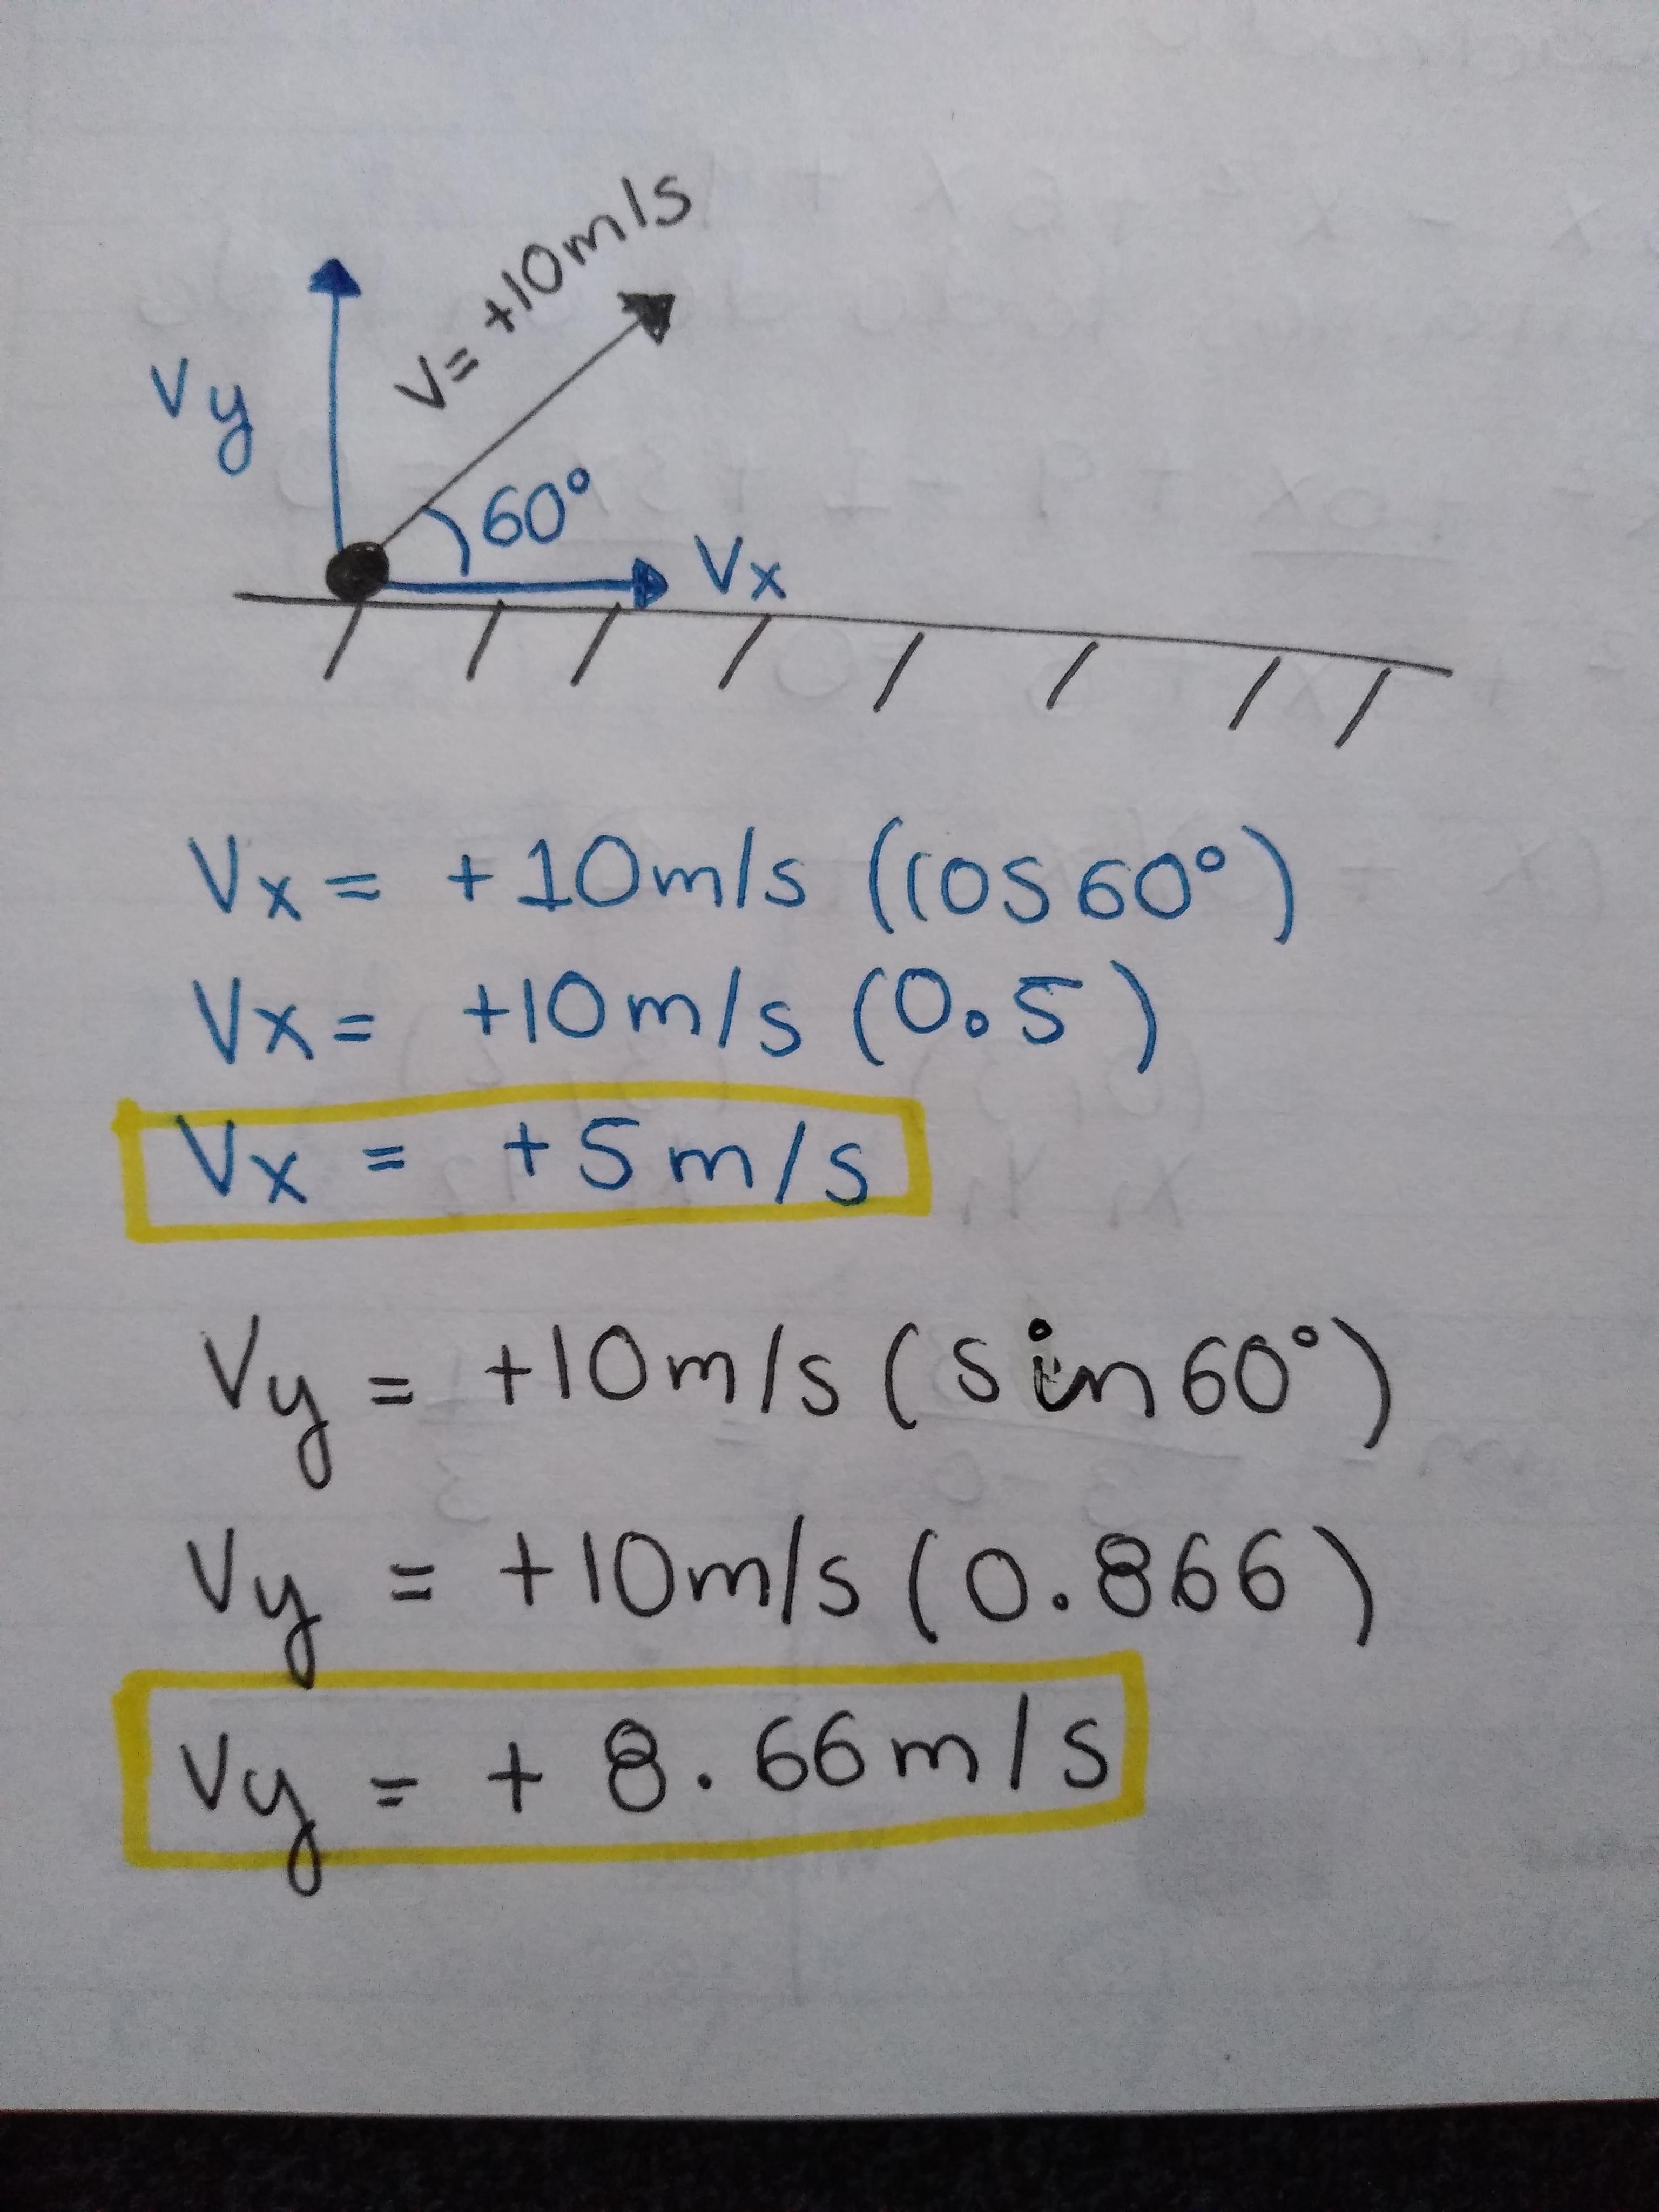 V= +10m/s
Vy
60°
Vx
Vx = +10m/s (cos60°)
Vx = +10m/s (0.5)
Vx = +5m/s
Vy = +10m/s (sin60°)
Vy = +10m/s (0.866)
Vy = + 8.66m/s